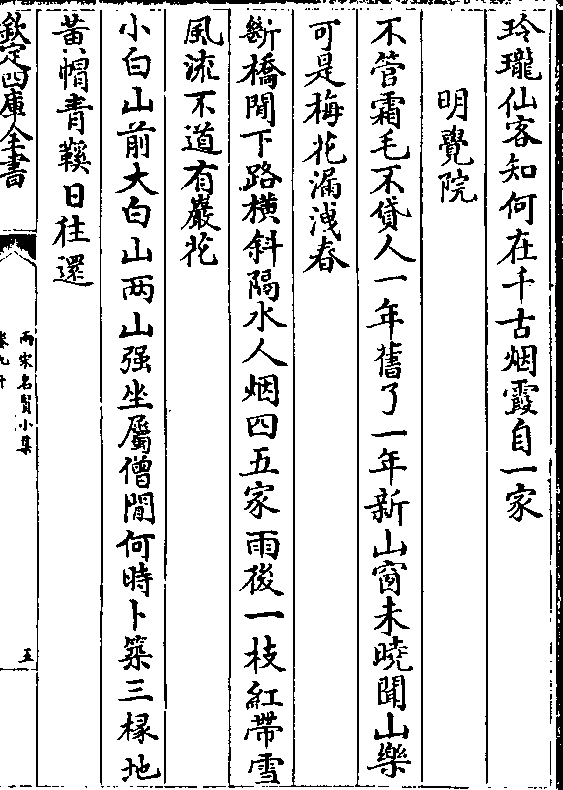 玲瓏仙客知何在千古烟霞自一家
明覺院
不管霜毛不貸人一年舊了一年新山窗未曉聞山樂
可是梅花漏洩春
斷橋閒下路橫斜隔水人烟四五家雨後一枝紅帶雪
風流不道有巖花
小白山前大白山两山强坐屬僧閒何時卜築三椽地
黃帽青鞵日往還
欽定四庫全書
兩宋名賢小集
五